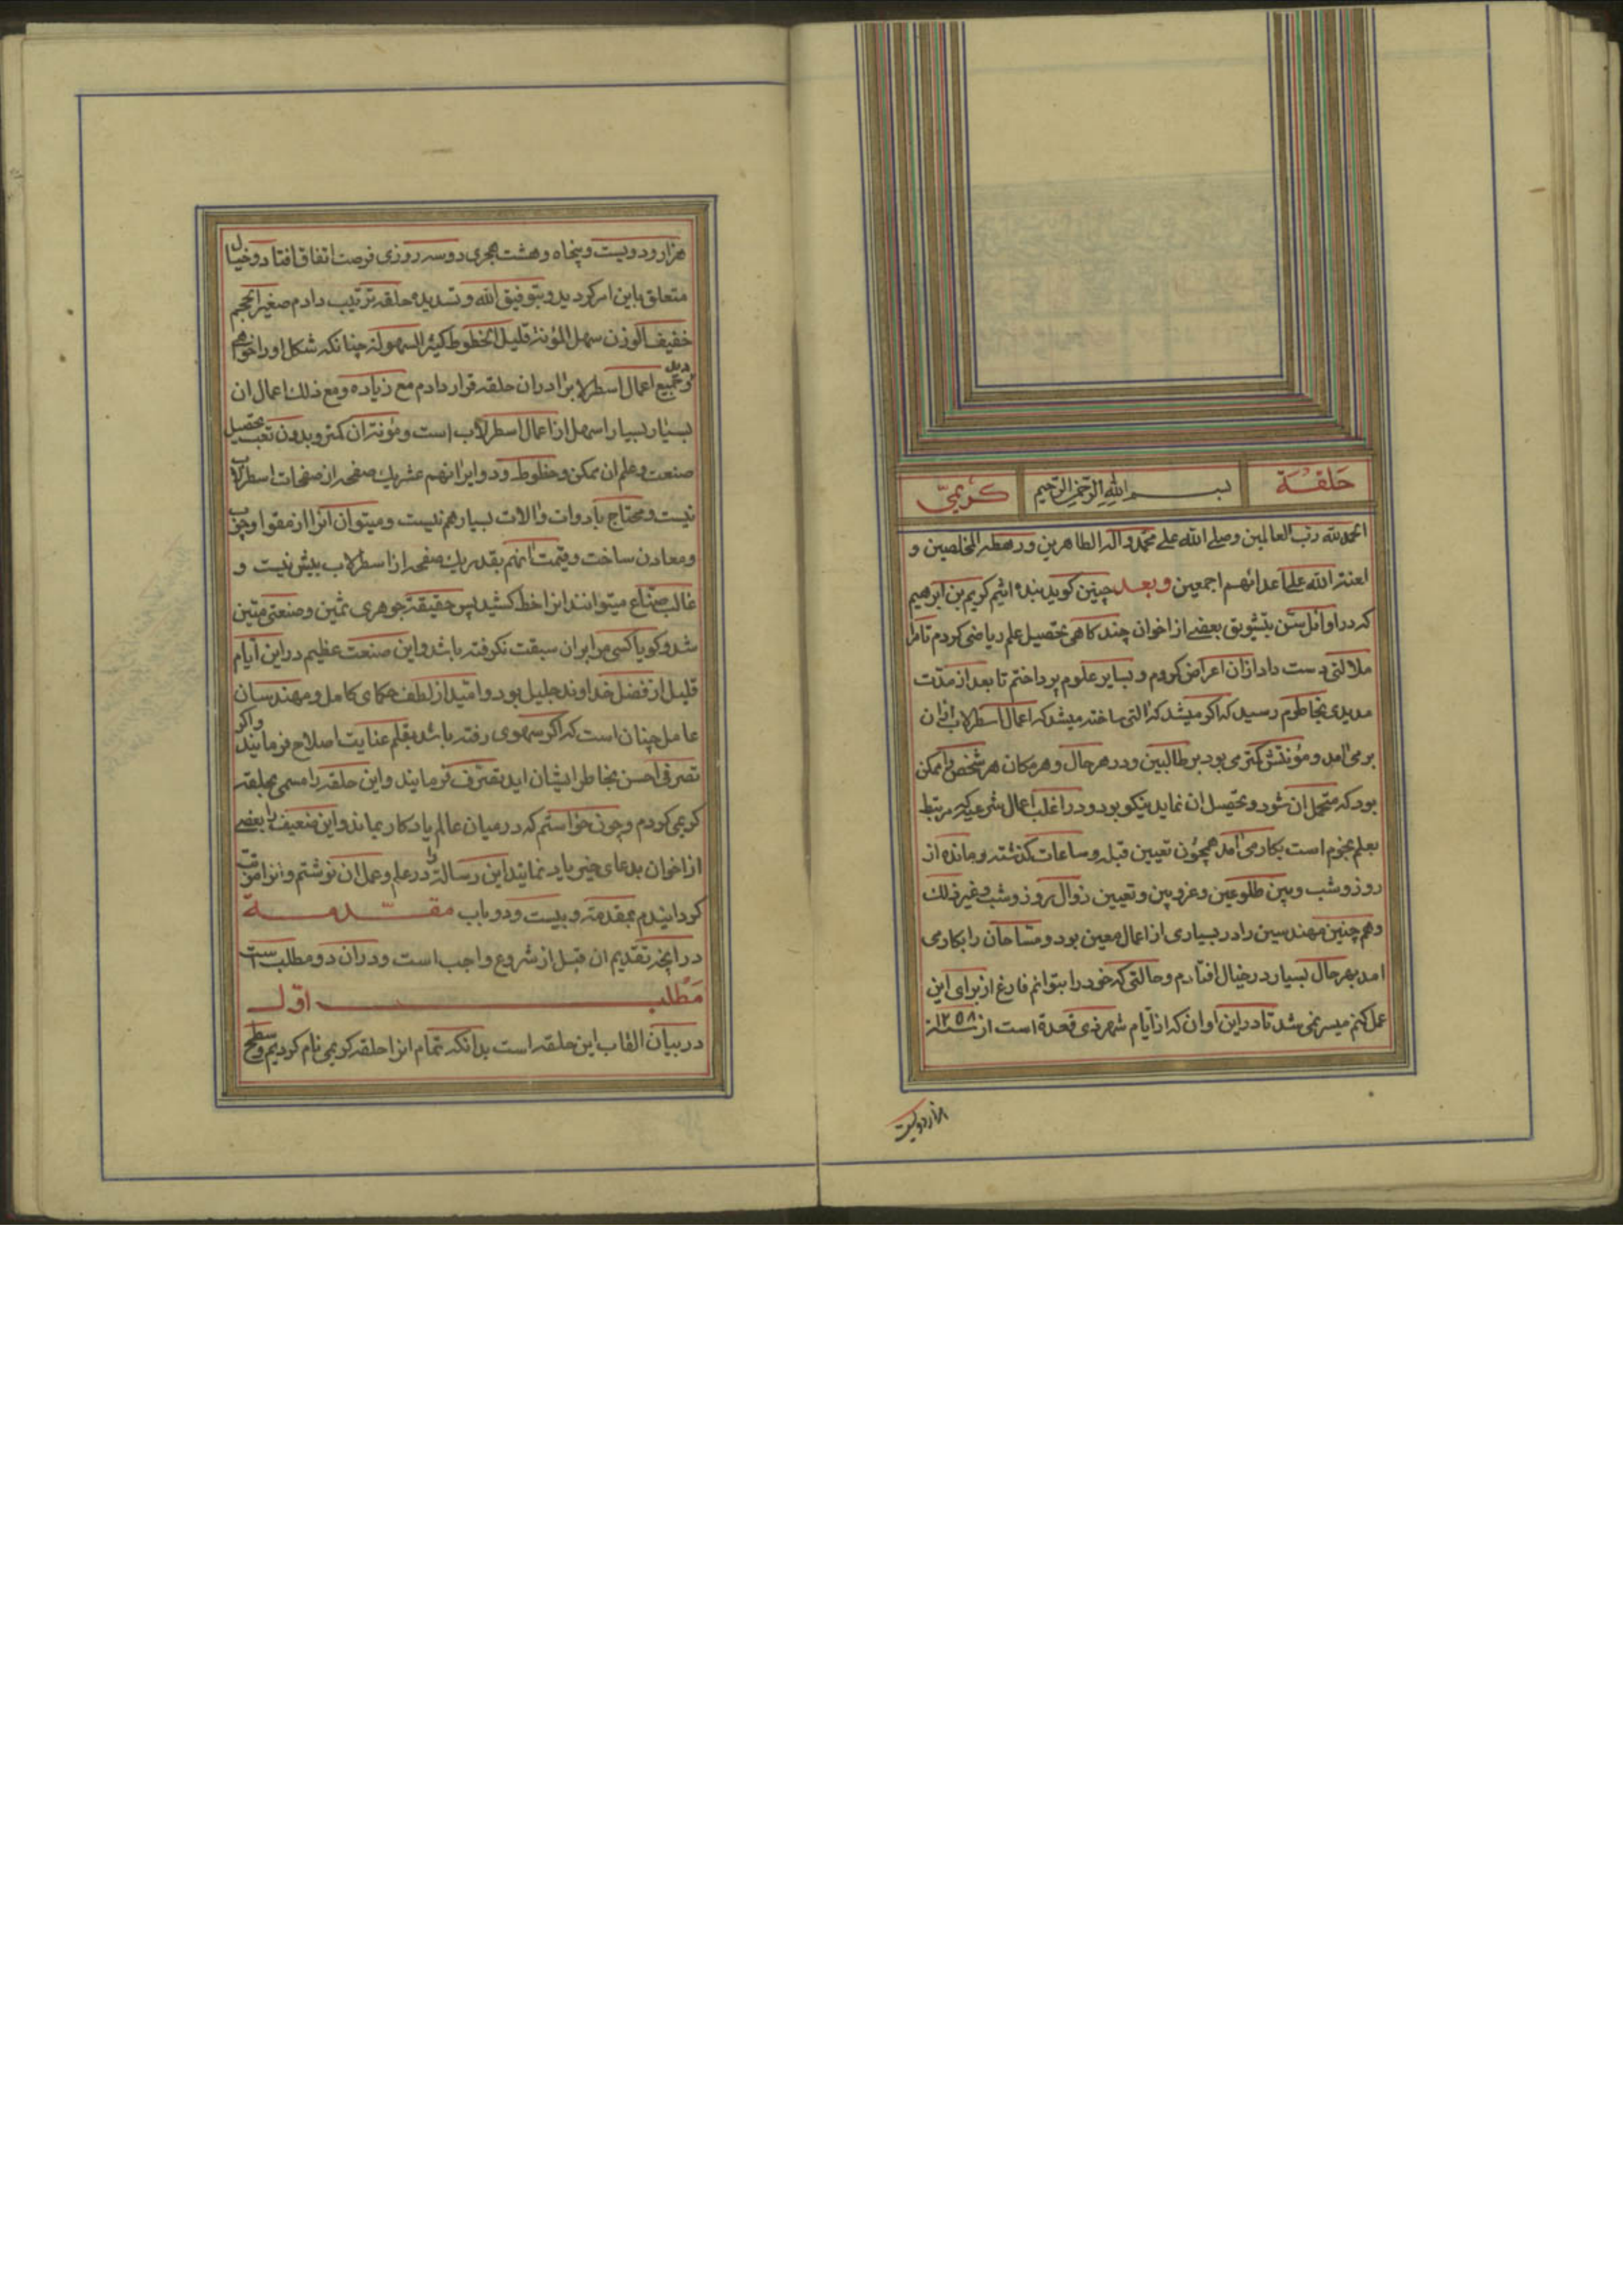 حلقة بسم الله الرحمن الرحیم کریمی
الحمد لله رب العالمین وصلی الله علی محمد واله الطاهرین ورهطه المخلصین و
لعنة الله علی اعدائهم اجمعین وبعد چنین کوید بنده اثیم کریم بن ابرهیم
که در اوائل سن بتشویق بعضی از اخوان چند کاهی تحصیل علم ریاضی کردم تا مرا
ملالتی دست داد ازان اعراض کردم و بسایر علوم پرداختم تا بعد از مدت
مدیدی بخاطرم رسید که اکر میشد که التی ساخته میشد که اعمال اسطرلاب ازان
برمی امد و مؤنتش کمتر می بود بر طالبین و در هر حال و هر مکان هر شخص را ممکن
بود که متحمل ان شود و تحصیل ان نماید نیکو بود و در اغلب اعمال شرعیه که مرتبط
بعلم نجوم است بکار می امد همچون تعیین قبله و ساعات کذشته و مانده از
روز و شب و بین طلوعین و غروبین و تعیین زوال روز و شب و غیر ذلک
و هم چنین مهندسین را در بسیاری از اعمال معین بود و مساحان را بکار می
امد بهر حال بسیار در خیال افتادم و حالتی که خود را بتوانم فارغ از برای این
عمل کنم میسر نمی شد تا در این اوان که از ایام شهر ذی قعدة است از سنه ۱۲۵۸
هزار و دویست
هزار و دویست و پنجاه و هشت هجری دو سه روزی فرصت اتفاق افتاد و خیال
متعلق باین امر کردید و بتوفیق الله و تسدیده حلقه ترتیب دادم صغیر الحجم
خفیف الوزن سهل المؤنة قلیل الخطوط کثیر السهولة چنانکه شکل او را خواهی
دید و جمیع اعمال اسطرلاب را در ان حلقه قرار دادم مع زیاده و مع ذلک اعمال ان
بسیار بسیار اسهل از اعمال اسطرلاب است و مؤنت ان کمتر و بدون تعب تحصیل
صنعت و علم ان ممکن و خطوط و دوایر انهم عشر یک صفحه از صفحات اسطرلاب
نیست و محتاج بادوات و الات بسیار هم نیست و میتوان انرا از مقوا و چوب
و معادن ساخت و قیمت انهم بقدر یک صفحه از اسطرلاب بیش نیست و
غالب صناع میتوانند انرا خط کشید پس حقیقة جوهری ثمین و صنعتی متین
شد و کویا کسی مرا بر ان سبقت نکرفته باشد و این صنعت عظیم در این ایام
قلیل از فضل خداوند جلیل بود و امید از لطف حکمای کامل و مهندسان
عامل چنان است که اکر سهوی رفته باشد بقلم عنایت اصلاح فرمایند و اکر
تصرفی احسن بخاطر ایشان اید تصرف فرمایند و این حلقه را مسمی بحلقه
کریمی کردم و چون خواستم که در میان عالم یادکار بماند و این ضعیف را بعضی
از اخوان بدعای خیر یاد نمایند این رساله را در علم و عمل ان نوشتم و انرا مرتب
کردانیدم بمقدمه و بیست و دو باب مقدمة
در انچه تقدیم ان قبل از شروع واجب است و در ان دو مطلب است
مطلب اول
در بیان القاب این حلقه است بدانکه تمام انرا حلقه کریمی نام کردیم و سطح